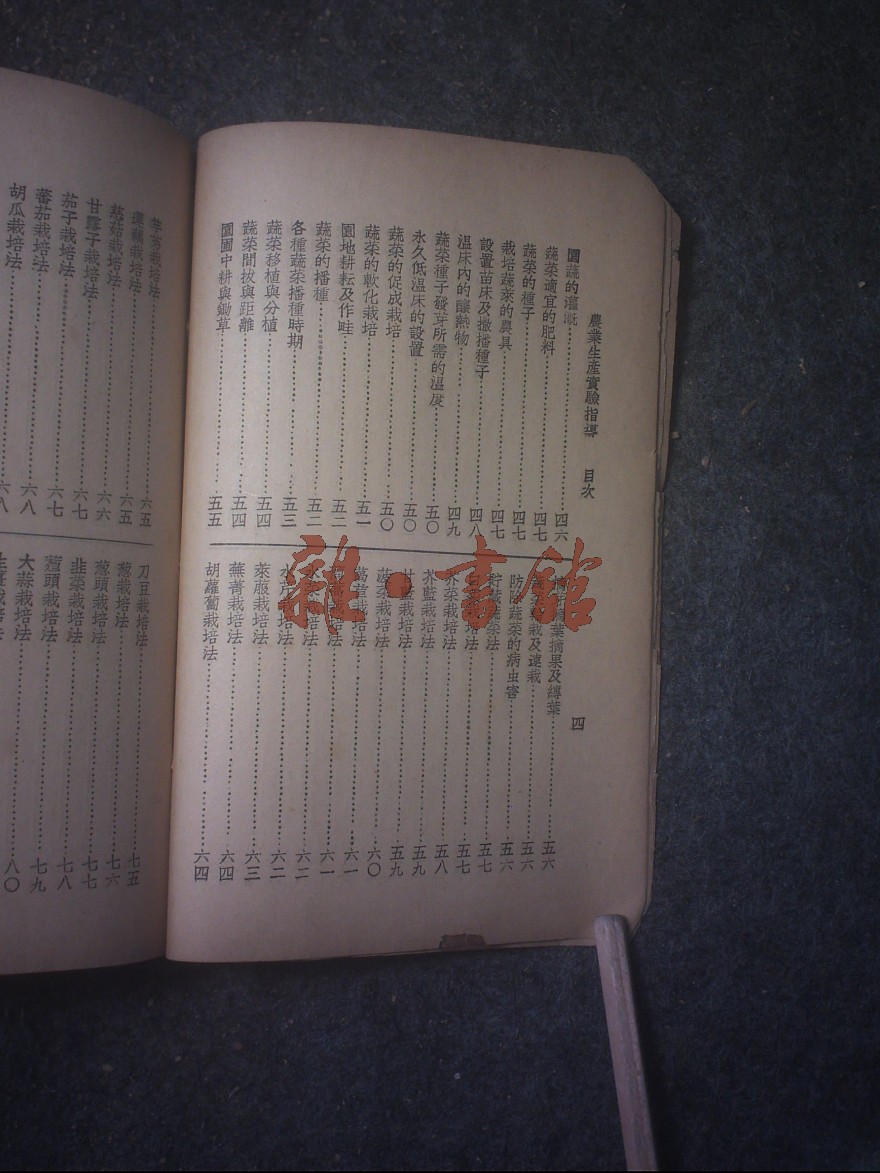 農業生產實驗指導 目次 四
園蔬的灌溉 四六
蔬菜適宜的肥料 四七
蔬菜的種子 四七
栽培蔬菜的農具 四七
設置苗床及撒播種子 四八
溫床內的釀熱物 四九
蔬菜種子發芽所需的溫度 五〇
永久低溫床的設置 五〇
蔬菜的促成栽培 五〇
蔬菜的軟化栽培 五一
園地耕耘及作畦 五二
蔬菜的播種 五二
各種蔬菜播種時期 五三
蔬菜移植與分植 五四
蔬菜間拔與距離 五四
園圃中耕與鋤草 五五
葉摘果及縛葉 五六
栽及速栽 五六
防除蔬菜的病虫害 五六
貯藏蔬菜法 五七
栽培法 五七
芥菜栽培法 五八
芥藍栽培法 五九
甘藍栽培法 五九
菠菜栽培法 六〇
萵苣栽培法 六一
栽培法 六一
栽培法 六二
水芹栽培法 六二
萊菔栽培法 六三
蕪菁栽培法 六四
胡蘿蔔栽培法 六四
芋艿栽培法 六五
蓮藕栽培法 六五
慈菇栽培法 六六
甘露子栽培法 六七
茄子栽培法 六七
蕃茄栽培法 六八
胡瓜栽培法 六八
刀豆栽培法 七五
葱栽培法 七六
葱頭栽培法 七七
韭菜栽培法 七八
薤頭栽培法 七九
大蒜栽培法 八〇
栽培法
雜·書館